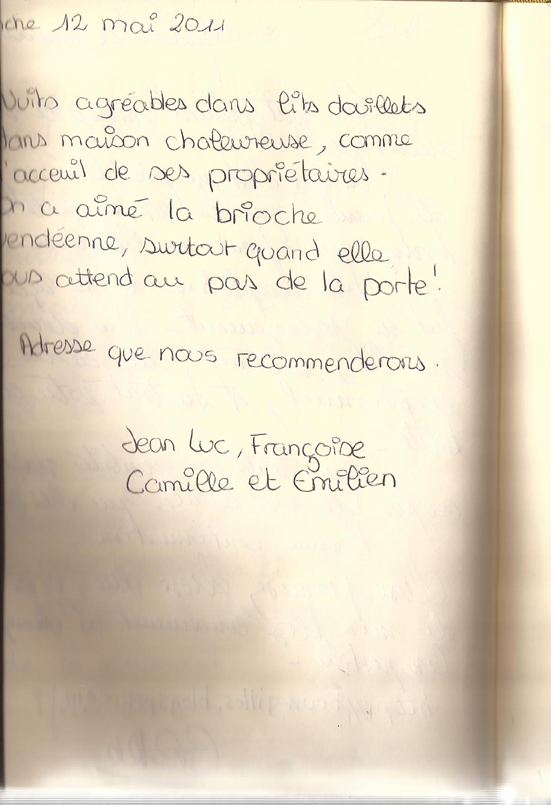 iche 12 mai 2011
Nuits agréables dans lits douillets
dans maison chaleureuse, comme
l'acceuil de ses propriétaires.
On a aimé la brioche
vendéenne, surtout quand elle
nous attend au pas de la porte !
Adresse que nous recommenderons.
Jean Luc, Françoise
Camille et Emilien